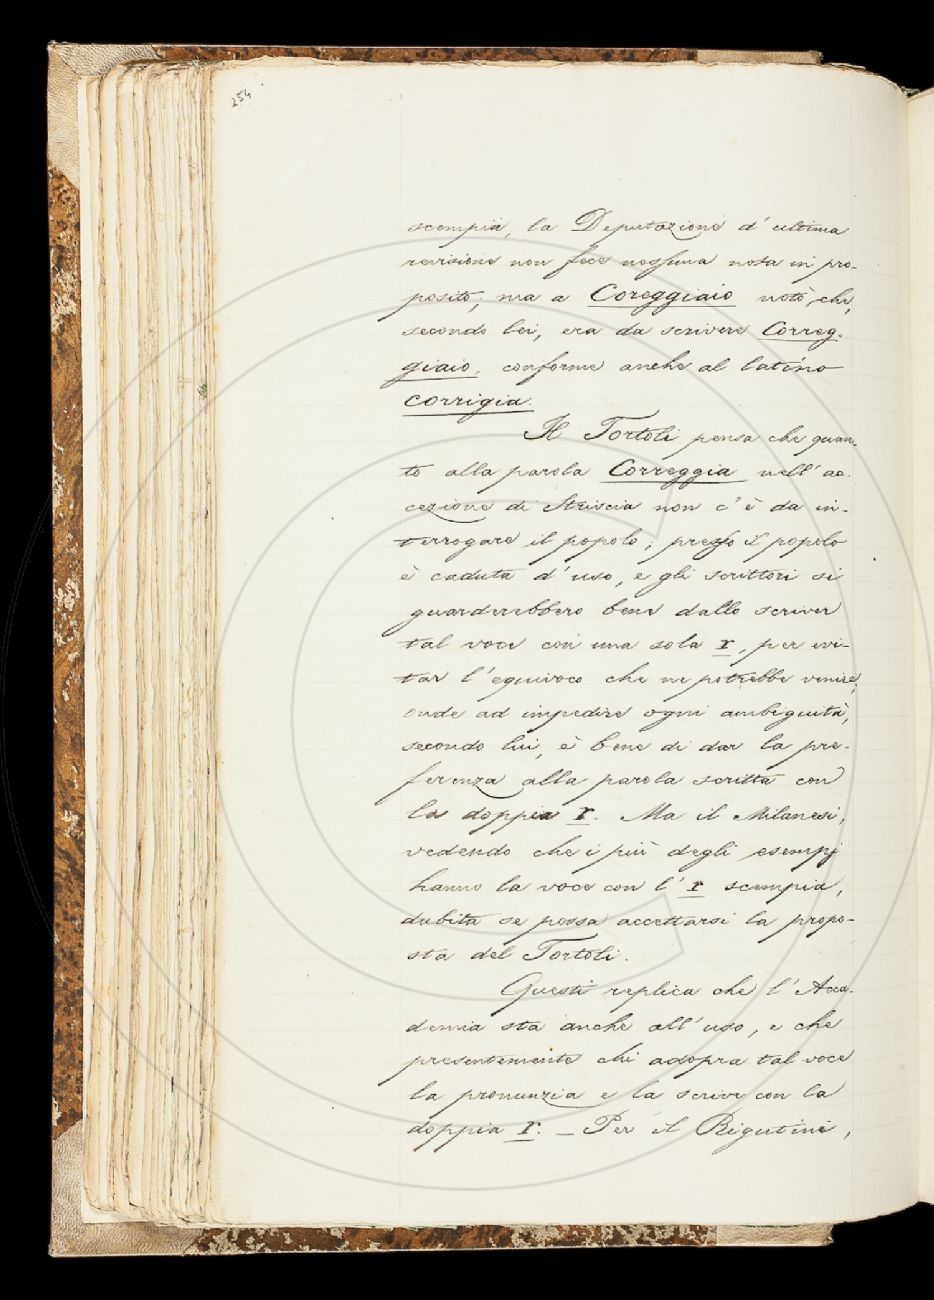 254
scempia, la Deputazione d'ultima
revisione non fece nessuna nota in pro-
posito; ma a Coreggiaio notò, che,
secondo lei, era da scrivere Correg-
giaio, conforme anche al latino
corrigia.
Il Tortoli pensa che quan-
to alla parola Correggia nell'ac-
cezione di Striscia non c'è da in-
terrogare il popolo; presso il popolo
è caduta d'uso, e gli scrittori si
guarderebbero bene dallo scriver
tal voce con una sola r, per evi-
tar l'equivoco che ne potrebbe venire;
onde ad impedire ogni ambiguità,
secondo lui, è bene di dar la pre-
ferenza alla parola scritta con
la doppia r. Ma il Milanesi,
vedendo che i più degli esempj
hanno la voce con l'r scempia,
dubita se possa accettarsi la propo-
sta del Tortoli.
Questi replica che l'Acca-
demia sta anche all'uso, e che
presentemente chi adopra tal voce
la pronunzia e la scrive con la
doppia r. — Per il Rigutini,